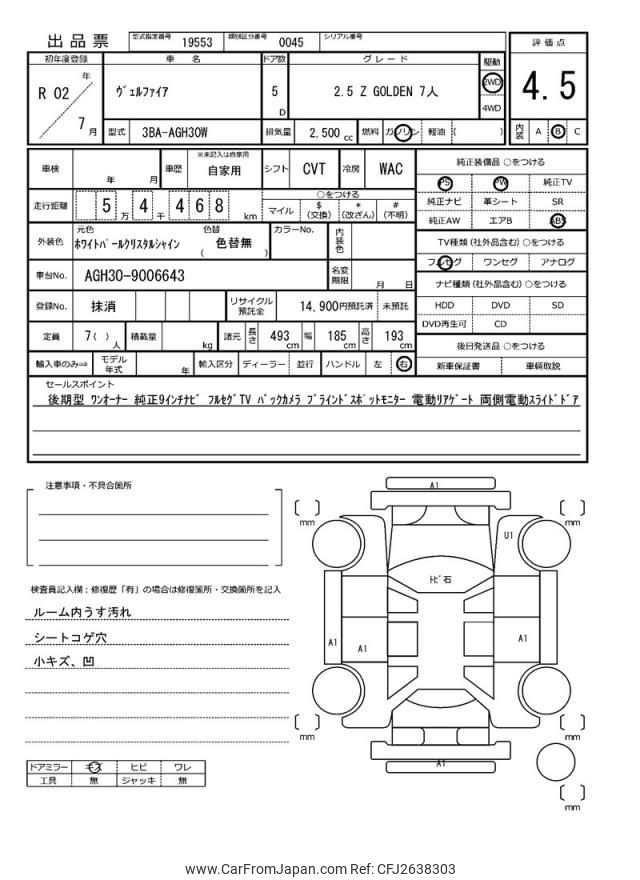 出品票 型式指定番号 19553 類別区分番号 0045 シリアル番号
初年度登録 車名 ドア数 グレード 駆動 評価点
R 02 年 7 月 ヴェルファイア 5 D 2.5 Z GOLDEN 7人 2WD 4WD 4.5
型式 3BA-AGH30W 排気量 2,500 cc 燃料 ガソリン 軽油 ( ) 内装 A B C
車検 年 月 車歴 ※未記入は自家用 自家用 シフト CVT 冷房 WAC
走行距離 5 万 4 千 4 6 8 km ○をつける
マイル $ (交換) * (改ざん) # (不明)
外装色 元色 ホワイトパールクリスタルシャイン 色替 ( 色替無 ) カラーNo. 内装色
車台No. AGH30-9006643 名変期限 月 日
登録No. 抹消 リサイクル預託金 14,900円預託済 未預託
定員 7( ) 人 積載量 kg 諸元 長さ 493 cm 幅 185 cm 高さ 193 cm
輸入車のみ⇒ モデル年式 年 輸入区分 ディーラー 並行 ハンドル 左 右
純正装備品 ○をつける
PS PW 純正TV
純正ナビ 革シート SR
純正AW エアB ABS
TV種類 (社外品含む) ○をつける
フルセグ ワンセグ アナログ
ナビ種類 (社外品含む) ○をつける
HDD DVD SD
DVD再生可 CD
後日発送品 ○をつける
新車保証書 車輌取説
セールスポイント
後期型 ワンオーナー 純正9インチナビ フルセグTV バックカメラ ブラインドスポットモニター 電動リアゲート 両側電動スライドドア
注意事項・不具合箇所
検査員記入欄：修復歴「有」の場合は修復箇所・交換箇所を記入
ルーム内うす汚れ
シートコゲ穴
小キズ、凹
ドアミラー キズ ヒビ ワレ
工具 無 ジャッキ 無
A1
mm mm
U1
トビ石
A1 A1 A1
mm mm
A1
mm
www.CarFromJapan.com Ref: CFJ2638303